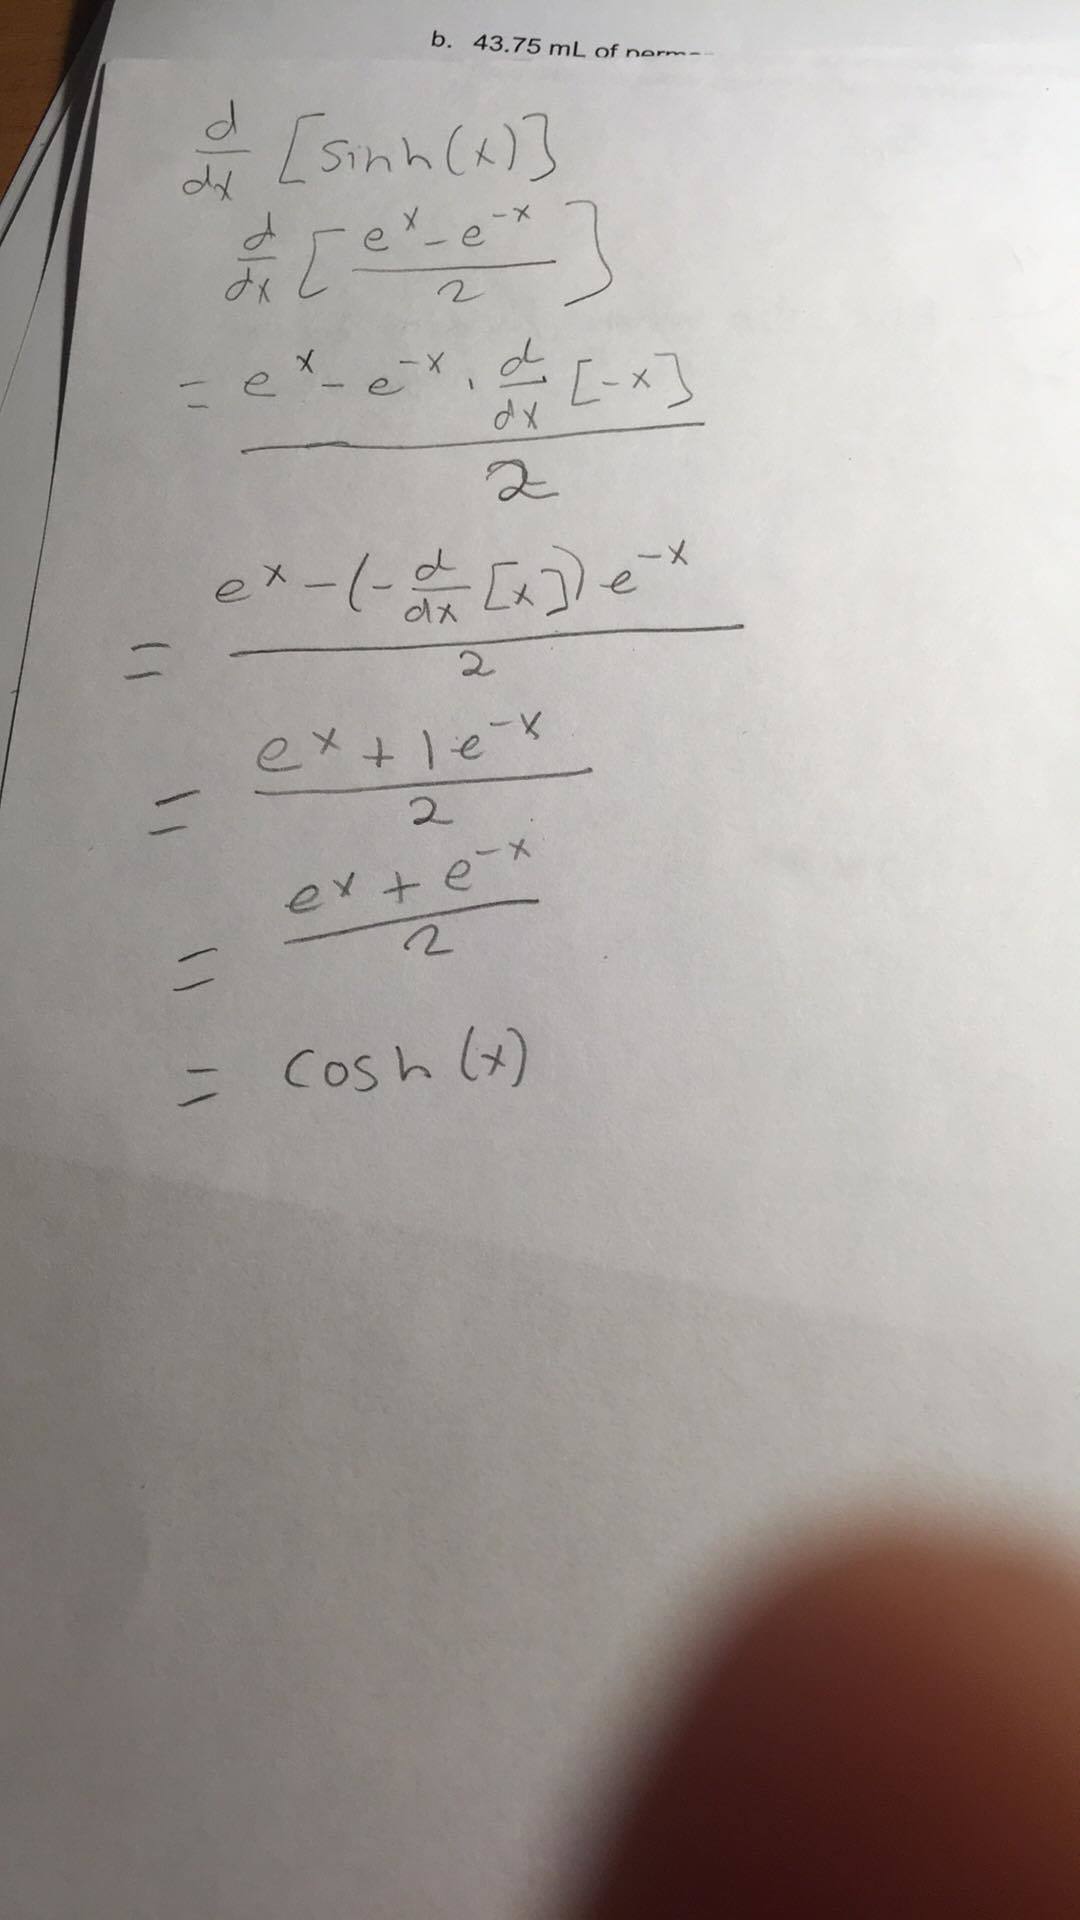 b. 43.75 mL of
d/dx [sinh(x)]
d/dx [(e^x - e^-x)/2]
= (e^x - e^-x · d/dx [-x])/2
= (e^x - (- d/dx [x]) e^-x)/2
= (e^x + 1e^-x)/2
= (e^x + e^-x)/2
= cosh(x)